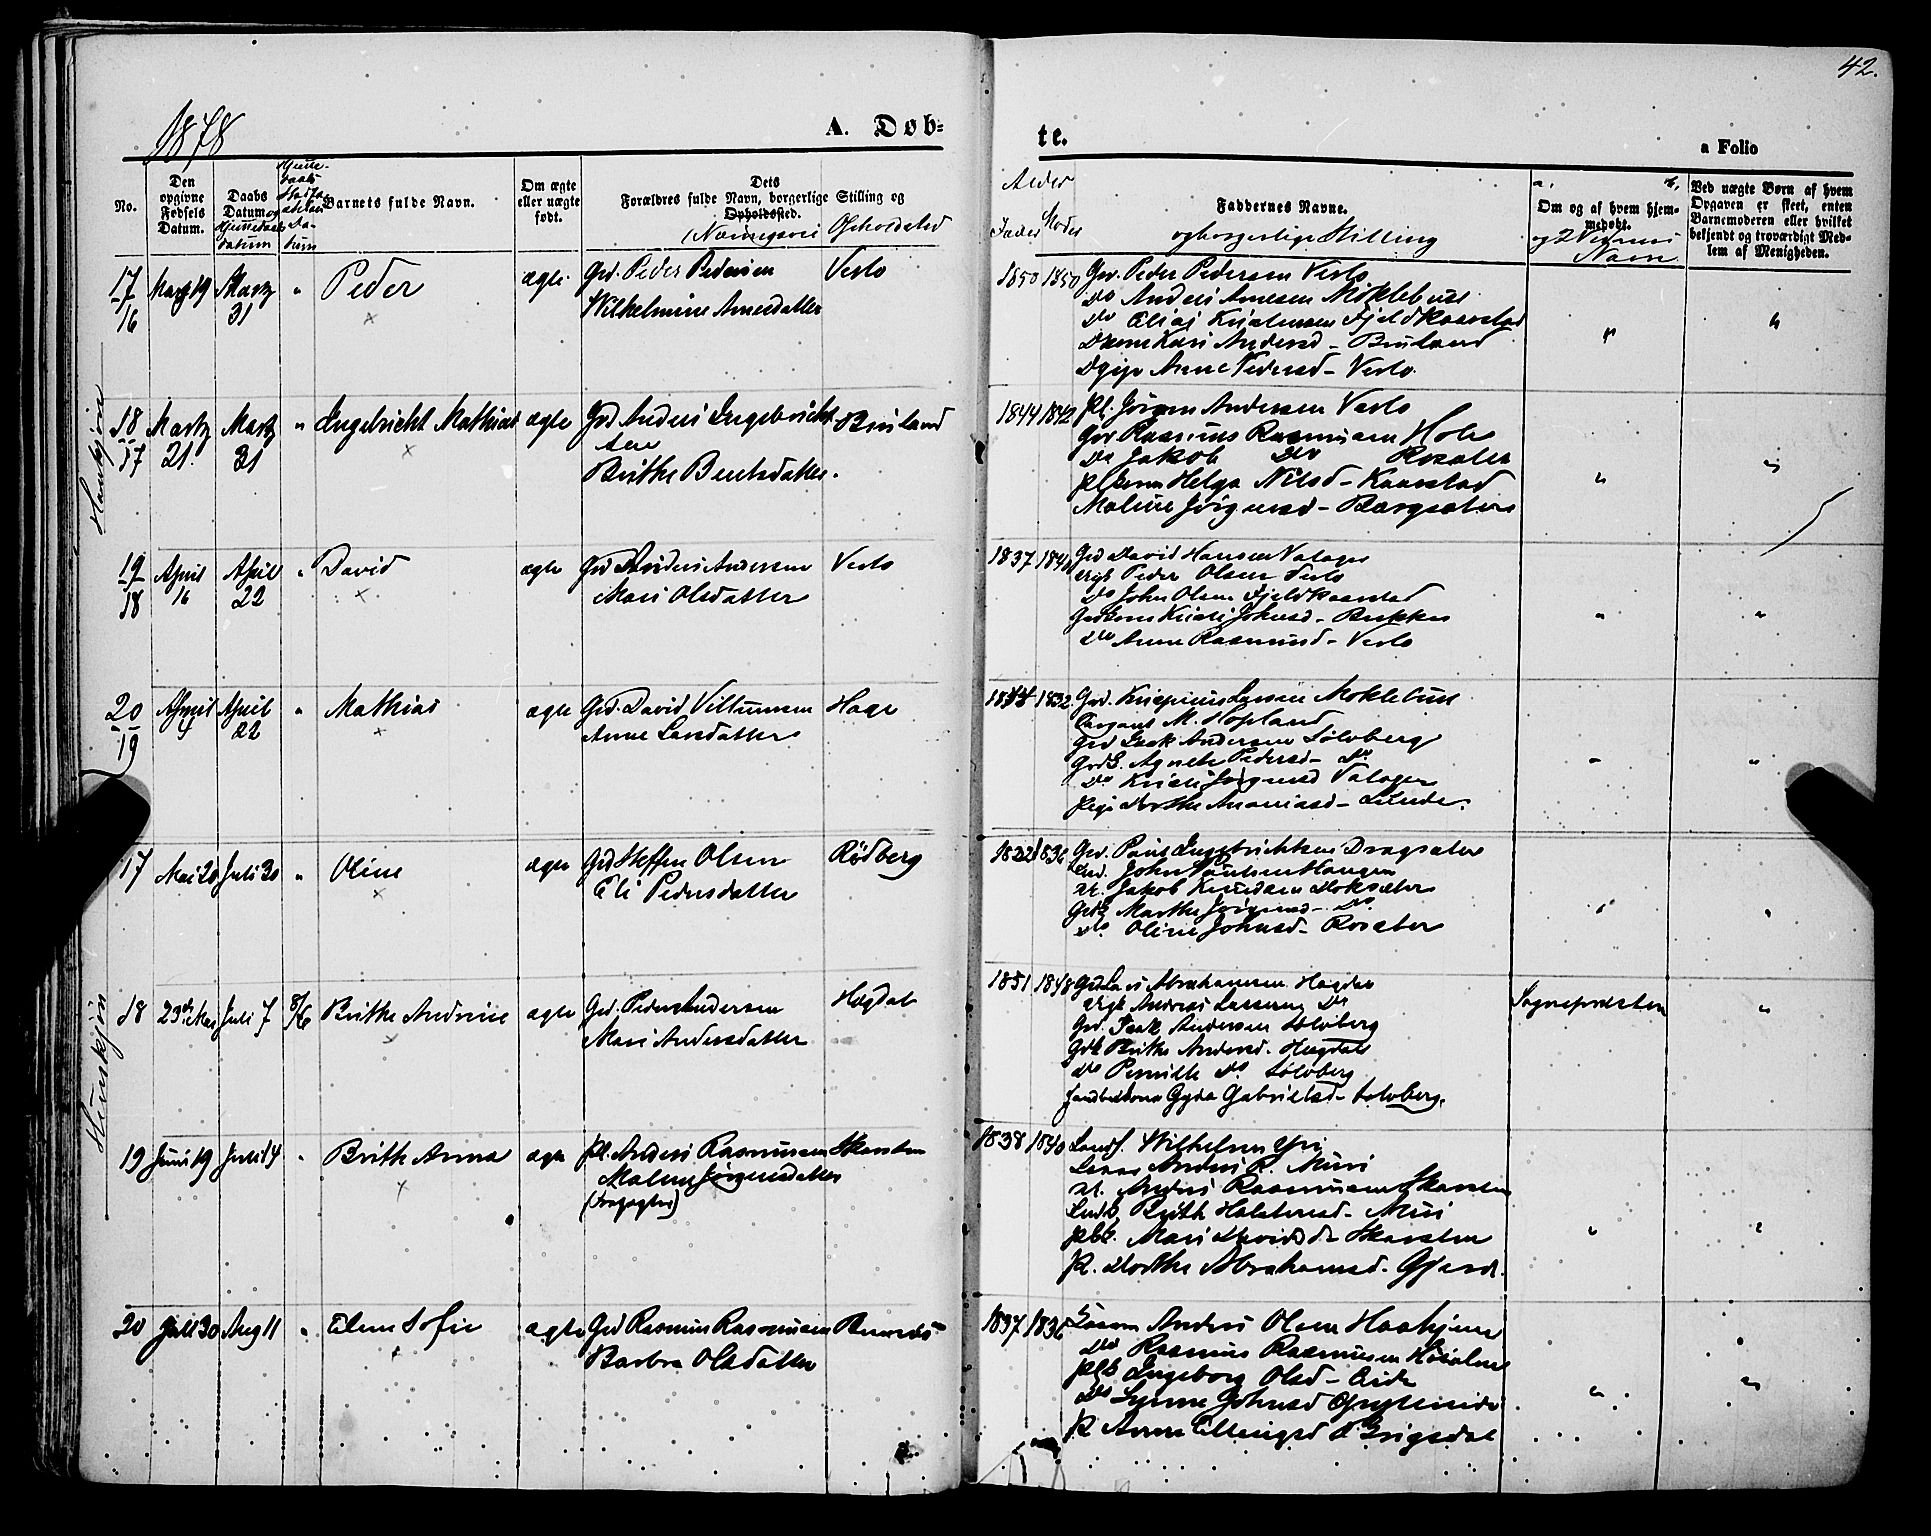 42.
1878
A. Døb=
te.
a Folio
No.
Den opgivne Fødsels Datum.
Daabs Datum og Hjemmedaabs datum
Barnets fulde Navn.
Om ægte eller uægte født.
Forældres fulde Navn, borgerlige Stilling og
Dets Opholdssted.
(Næringsvei Opholdssted
Alder
Fader Moder
Faddernes Navne.
og borgerlige Stilling
Om og af hvem hjemmedøbt.
og 2 Vidners Navn
Ved uægte Børn af hvem Opgaven er skeet, enten Barnemoderen eller hvilket bekjendt og troværdigt Medlem af Menigheden.
Hankjøn
17/16 Marts 19 Marts 31 " Peder ægte Grd. Peder Pedersen Verlo
Wilhelmine Arnesdatter
1850 1850 Grd. Peder Pedersen Verlo
Do Anders Arnesen Møklebust
Do Elias Kristensen Fjeldkaarstad
Kari Andersd - Bruland
Pige Anne Pedersd - Verlo
18/17 Marts 21. Marts 31 " Engebricht Mathias ægte Grd Anders Engebricht- Bruland
sen
Brithe Bentsdatter.
1844 1842 Pl. Jørgen Andersen Verlo
Grd Rasmus Rasmussen Hole
Do Jakob Do Rosæter
Helga Nilsd - Kaarstad
Maline Jørgensd - Bergsæter
19/18 April 16 April 22 " David ægte Grd Anders Andersen Verlo
Mari Olsdatter
1837 1840 Grd David Hansen Valager
Ungk Peder Olsen Verlo
Do John Olsen Fjeldkaarstad
Kristi Johnsd - Brekken
Do Anne Rasmusd - Verlo
20/19 April 4 April 22 " Mathias ægte Grd. David Villumsen Hage
Anne Larsdatter
1832. Grd. Møklebust
Sergeant M. Hopland
Grd Isak Andersen Sølvberg
Agnethe Pedersd - Do
Do Kristi Jørgensd Valager
Pige Dorthe Ananiasd - Lunde.
Kvinskjøn
17 Mai 20 Juli 30 " Oline ægte Grd Steffen Olsen Rødberg
Eli Pedersdatter
1822 1836 Grd. Paul Engebrichtsen Dragsæter
John Paulsen Haugen
Jakob Knudsen Doksæter
Marthe Jørgensd - Do
Do. Oline Johnsd - Rosæter
18 23de Mai Juli 7 8/6 Brithe Andrine ægte Grd. Peder Andersen Hægdal
Mari Andersdatter
1851 1848 Grd Lars Abrahamsen Hægdal
Ungk Andreas Larsen Do
Grd. Isak Andersen Sølvberg
Brithe Andersd. Hægdal
Do Pernille Do Sølvberg
Gyda Gabrielsd - Sølvberg.
Sognepræsten
19 Juni 19 Juli 14 " Brithe Anna ægte Pl. Anders Rasmussen Skarsten
Malene Jørgensdatter
1838 1840 Wilhelm Yri
Anders R. Muri
Anders Rasmussen Skarsten
Brith Halstensd - Muri
Mari Davidsd Skarsten
P. Dorthe Abrahamsd - Gjerde.
20 Juli 30 Aug 11 " Elen Sofie ægte Grd Rasmus Rasmussen
Barbra Olsdatter
1837 1836 Anders Olsen
Do Rasmus Rasmussen
Ingeborg Olsd - Eide
Do Synne Johnsd
P. Anne Ellingsd Brigsdal